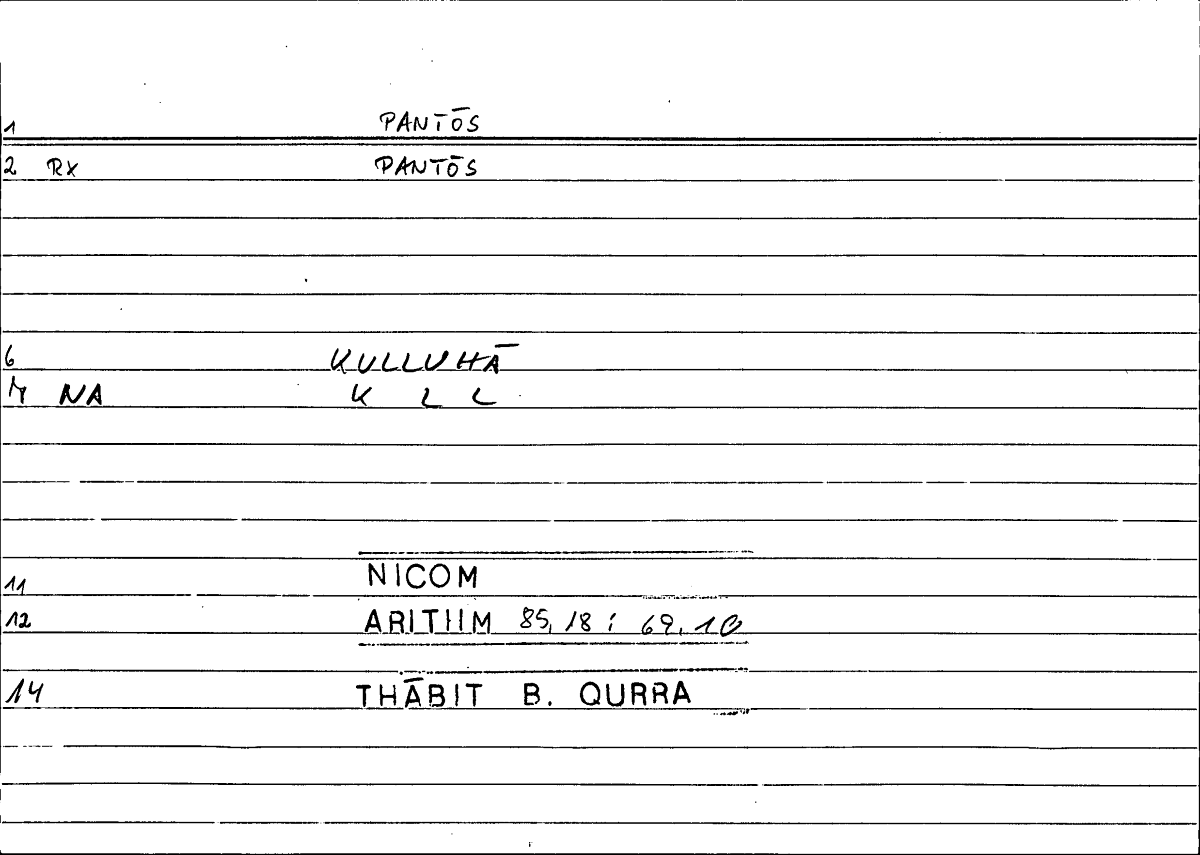 1 PANTŌS
2 RX PANTŌS
6 KULLUHĀ
7 NA K L L
11 NICOM
12 ARITHM 85,18 : 69,10
14 THĀBIT B. QURRA